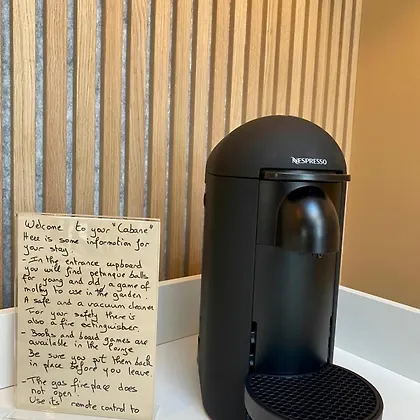 NESPRESSO
Welcome to your "Cabane"
Here is some information for
your stay:
- In the entrance cupboard
you will find petanque balls
for young and old, a game of
molky to use in the garden.
A safe and a vacuum cleaner
- For your safety there is
also a fire extinguisher.
- Books and board games are
available in the lounge
Be sure you put them back
in place before you leave.
- The gas fireplace does
not open.
Use its remote control to